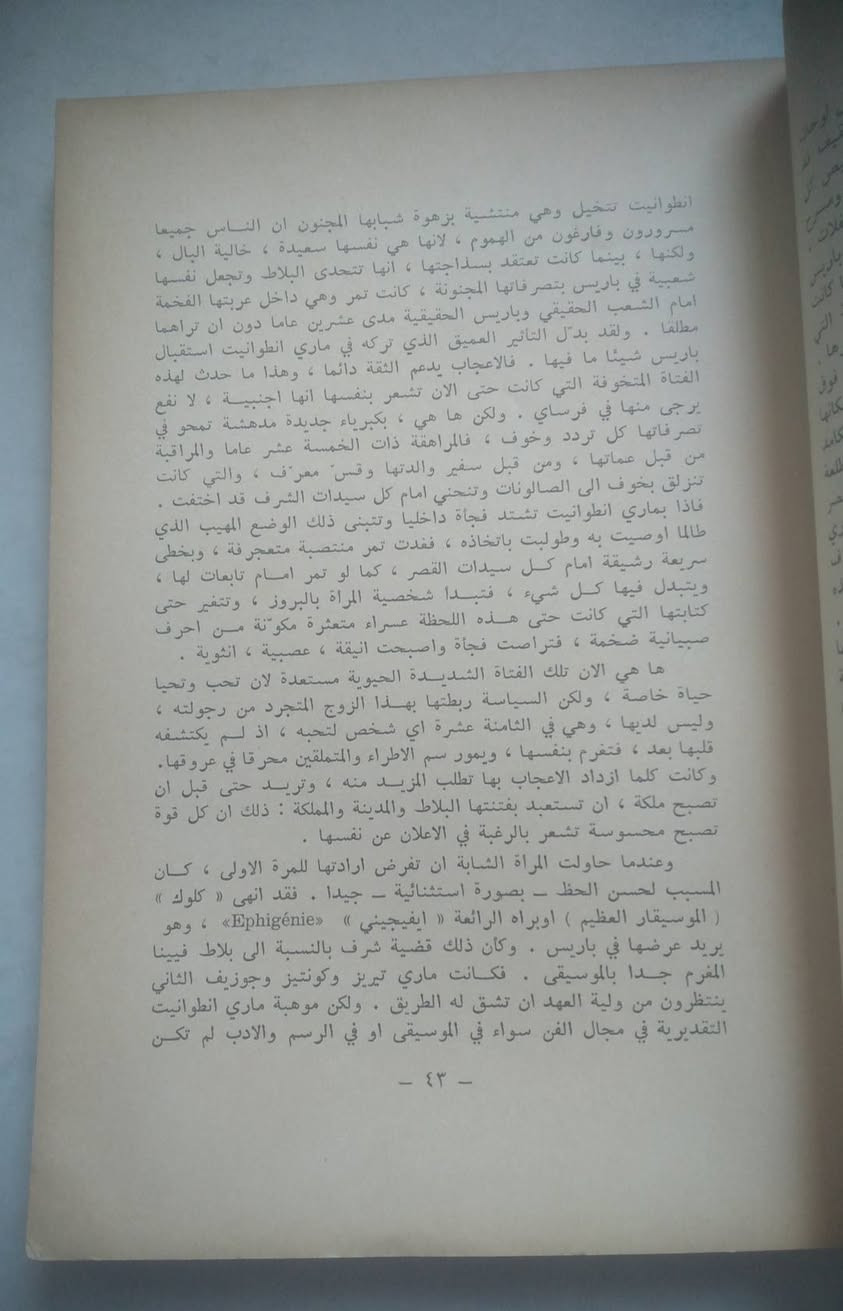 انطوانيت تتخيل وهي منتشية بزهوة شبابها المجنون ان النـاس جميعا
مـسرورون وفارغون من الهموم ، لانها هي نفسها سعيدة ، خالية البال ،
ولكنها ، بينما كانت تعتقد بسذاجتها ، انها تتحدى البلاط وتجعل نفسها
شعبية في باريس بتصرفاتها المجنونة ، كانت تمر وهي داخل عربتها الفخمة
امام الشعب الحقيقي وباريس الحقيقية مدى عشرين عاما دون ان تراهما
مطلقا . ولقد بدّل التأثير العميق الذي تركه في ماري انطوانيت استقبال
باريس شيئا ما فيها . فالاعجاب يدعم الثقة دائما ، وهذا ما حدث لهذه
الفتاة المتخوفة التي كانت حتى الان تشعر بنفسها انها اجنبيـة ، لا نفع
يرجى منها في فرساي . ولكن ها هي ، بكبرياء جديدة مدهشة تمحو في
تصرفاتها كل تردد وخوف ، فالمراهقة ذات الخمسة عشر عاما والمراقبة
من قبل عماتها ، ومن قبل سفير والدتها وقسّ معرّف ، والتي كانت
تنزلق بخوف الى الصالونات وتنحني امام كل سيدات الشرف قد اختفت .
فاذا بماري انطوانيت تشتد فجأة داخليا وتتبنى ذلك الوضع المهيب الذي
طالما اوصيت به وطولبت باتخاذه ، فغدت تمر منتصبة متعجرفة ، وبخطى
سريعة رشيقة امام كـل سيدات القصر ، كما لو تمر امـام تابعات لها ،
ويتبدل فيها كـل شيء ، فتبـدا شخصية المراة بالبروز ، وتتغير حتى
كتابتها التي كانت حتى هـذه اللحظة عسراء متعثرة مكوّنة مـن احرف
صبيانية ضخمة ، فتراصت فجأة واصبحت انيقة ، عصبية ، انثوية .
ها هي الان تلك الفتاة الشديـدة الحيوية مستعدة لان تحب وتحيا
حياة خاصة ، ولكن السياسة ربطتها بهـذا الزوج المتجرد من رجولته ،
وليس لديها ، وهي في الثامنة عشرة اي شخص لتحبه ، اذ لـم يكتشفه
قلبها بعد ، فتغرم بنفسها ، ويمور سم الاطراء والمتملقين محرقا في عروقها.
وكانت كلما ازداد الاعجاب بها تطلب المزيـد منه ، وتريـد حتى قبل ان
تصبح ملكة ، ان تستعبد بفتنتها البلاط والمدينة والمملكة : ذلك ان كل قوة
تصبح محسوسة تشعر بالرغبة في الاعلان عن نفسها .
وعندما حاولت المراة الشابة ان تفرض ارادتها للمرة الاولى ، كـان
المسبب لحسن الحظ ــ بصورة استثنائية ــ جيدا . فقد انهى « كلوك »
( الموسيقار العظيم ) اوبراه الرائعة « ايفيجيني » «Ephigénie» ، وهو
يريد عرضها في باريس . وكان ذلك قضية شرف بالنسبة الى بلاط فيينا
المغرم جـدا بالموسيقى . فكـانت ماري تيريز وكونتيز وجوزيف الثاني
ينتظرون من ولية العهد ان تشق له الطريق . ولكن موهبة ماري انطوانيت
التقديرية في مجال الفن سواء في الموسيقى او في الرسم والادب لم تكـن
– ٤٣ –